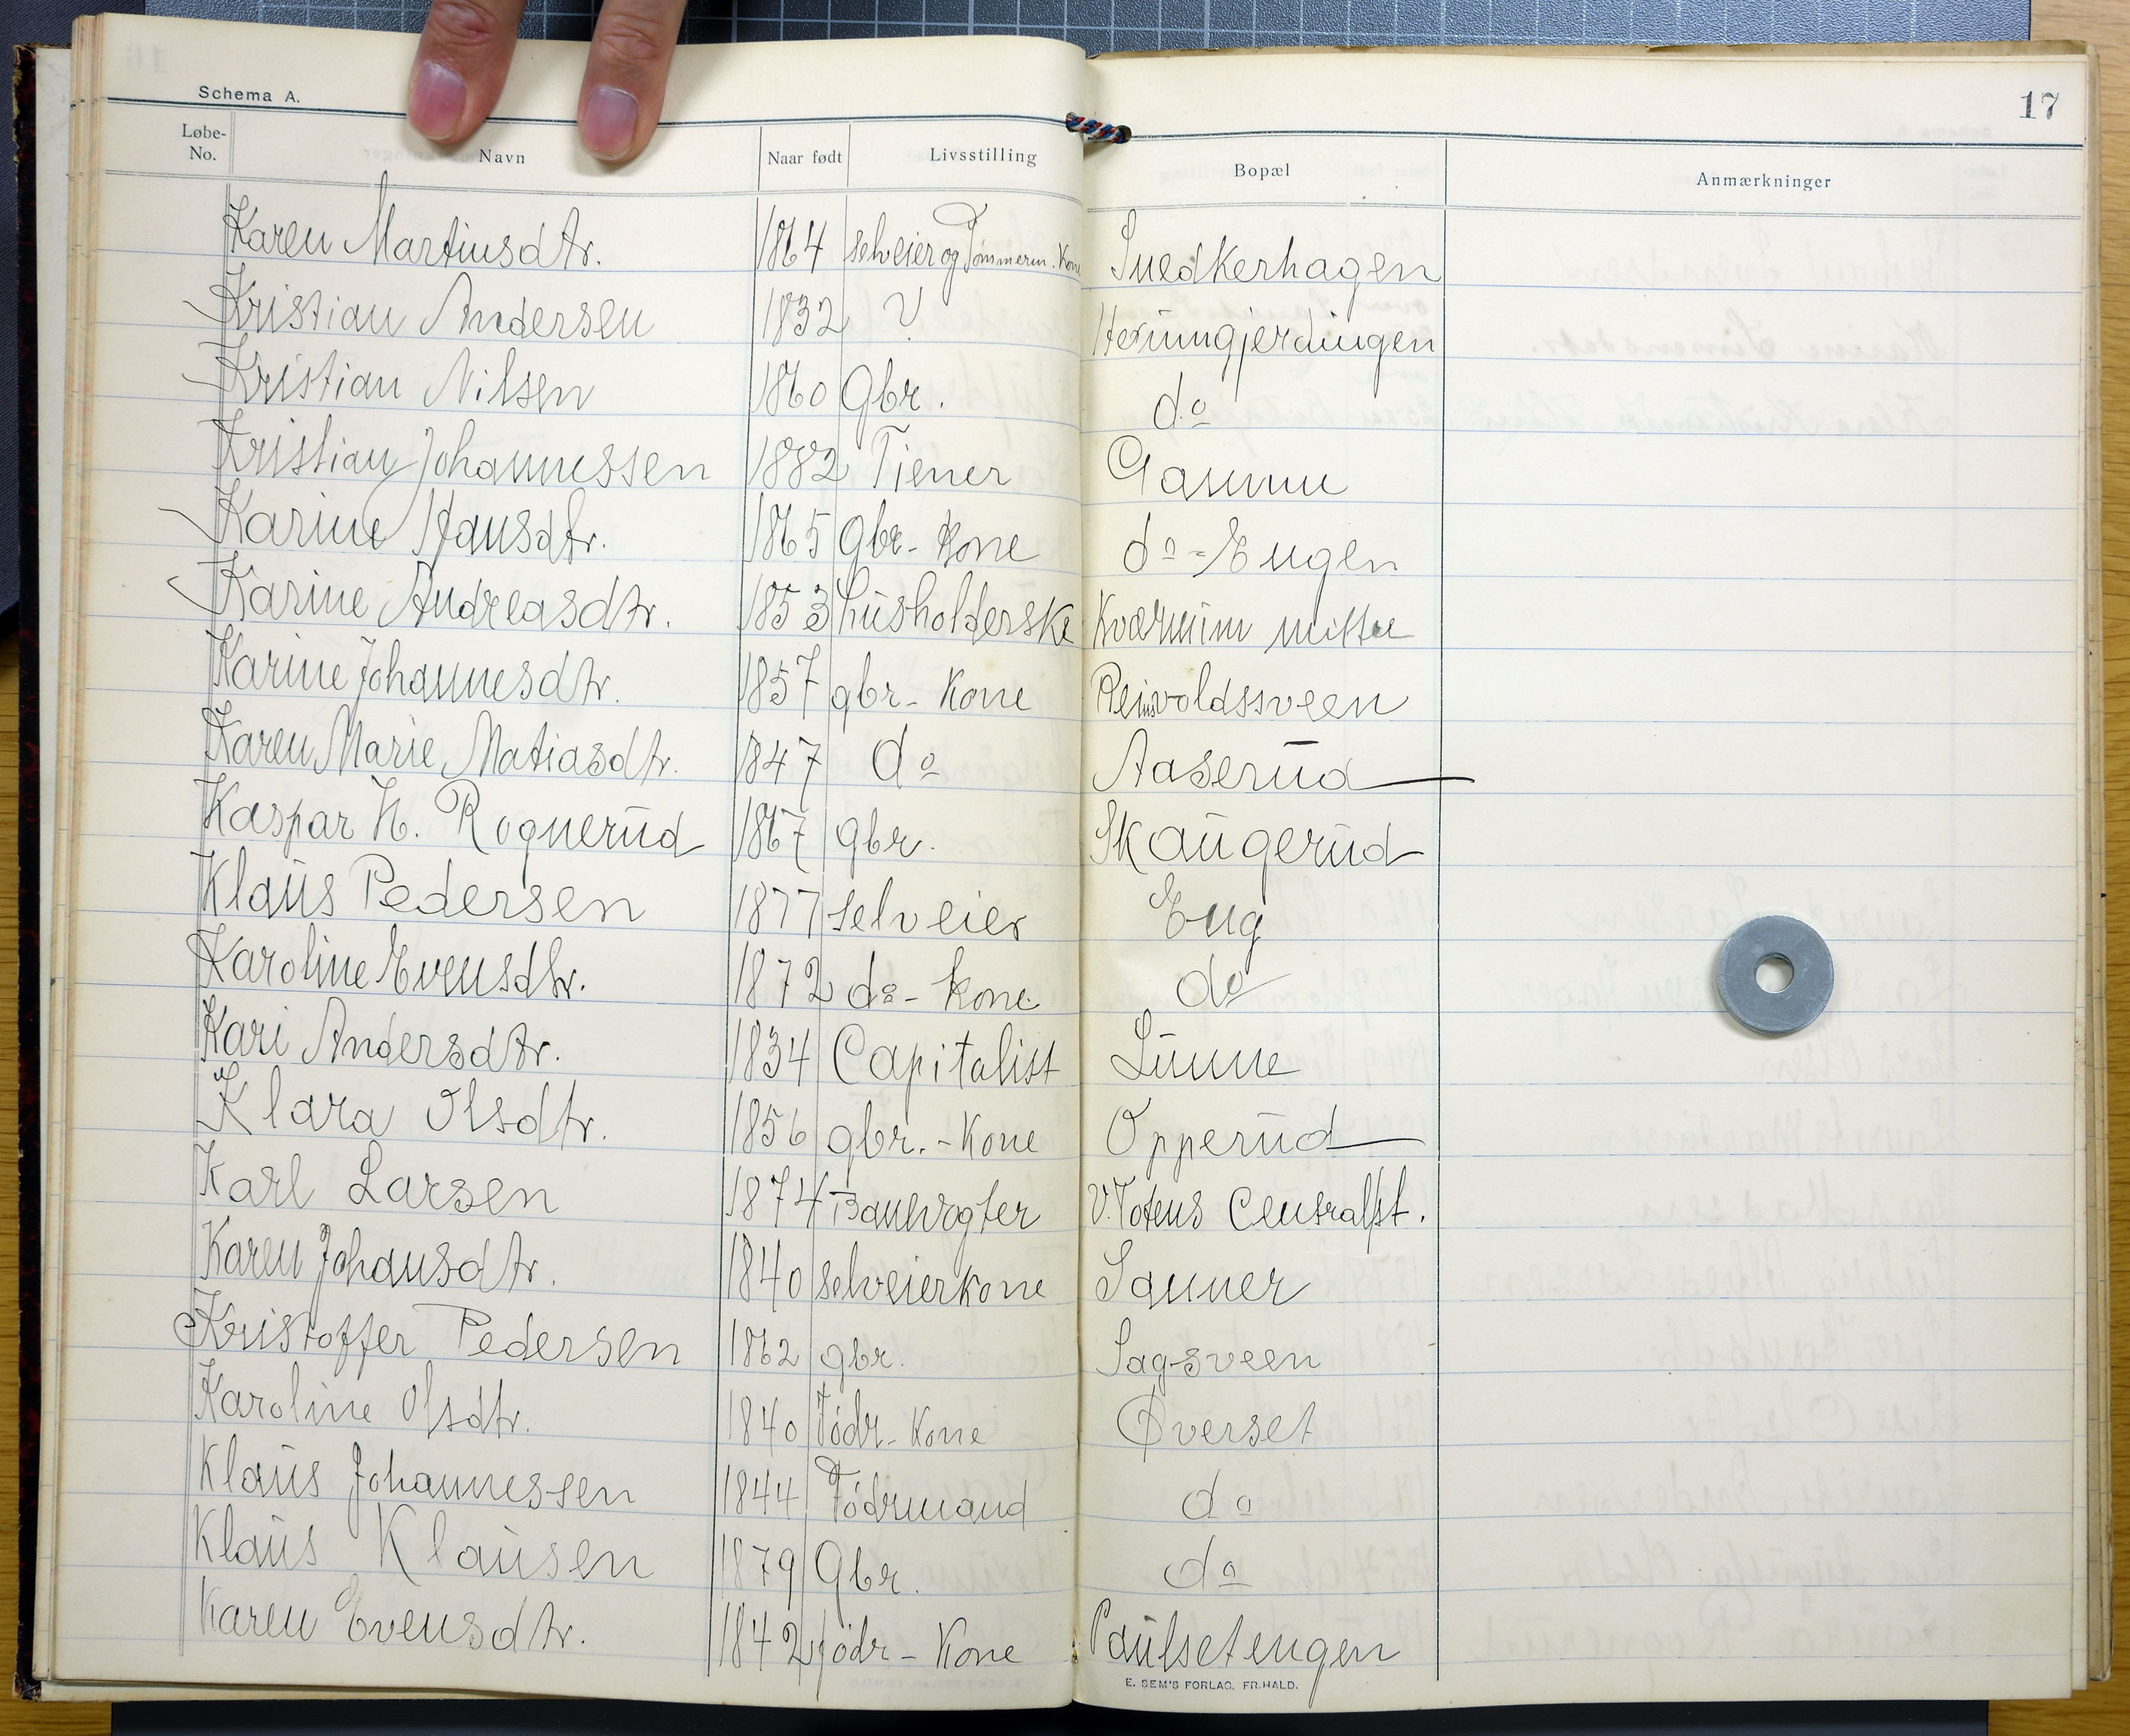 17
Schema A.
Løbe-No. Navn Naar født Livsstilling Bopæl Anmærkninger
Karen Martinsdtr. 1864 selveier og Tømmerm. Kone Snedkerhagen
Kristian Andersen 1832 Hernungjerdingen
Kristian Nilsen 1860 Gbr. do
Kristian Johannessen 1882 Tiener
Karine Hansdtr. 1865 Gbr- Kone do - Engen
Karine Andreasdtr. 1853 husholderske Kværnum mittre
Karine Johannesdtr. 1857 gbr- Kone Reinvoldssveen
Karen Marie Matiasdtr. 1847 do Aaserud
Kaspar H. Rognerud 1867 gbr. Skaugerud
Klaus Pedersen 1877 selveier Eng
Karoline Evensdtr. 1872 do - kone do
Kari Andersdtr. 1834 Capitalist Lunne
Klara Olsdtr. 1856 gbr. - Kone Opperud
Karl Larsen 1874 Banevogter V. Totens Centralst.
Karen Johansdtr. 1840 selveierkone Sanner
Kristoffer Pedersen 1862 gbr. Sagsveen
Karoline Olsdtr. 1840 Födr- Kone Øverset
Klaus Johannessen 1844 Födrmand do
Klaus Klausen 1879 Gbr. do
Karen Evensdtr. 1842 födr - Kone Paulsetengen
E. SEM'S FORLAG, FR.HALD.